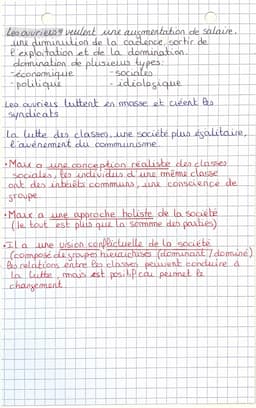 Les ouvriers veulent une augmentation de salaire,
une diminution de la cadence, sortir de
l'exploitation et de la domination.
domination de plusieurs types:
-économique -sociales
-politique -idéologique
Les ouvriers luttent en masse et créent les
syndicats
La lutte des classes, une société plus égalitaire,
l'avènement du communisme.
•Marx a une conception réaliste des classes
sociales, les individus d'une même classe
ont des intérêts communs, une conscience de
groupe
•Marx a une approche holiste de la société
(le tout est plus que la somme des parties)
•Il a une vision conflictuelle de la société
(composé de groupes hiérarchisés (dominant/dominé)
les relations entre les classes peuvent conduire à
la lutte, mais est positif car permet le
changement